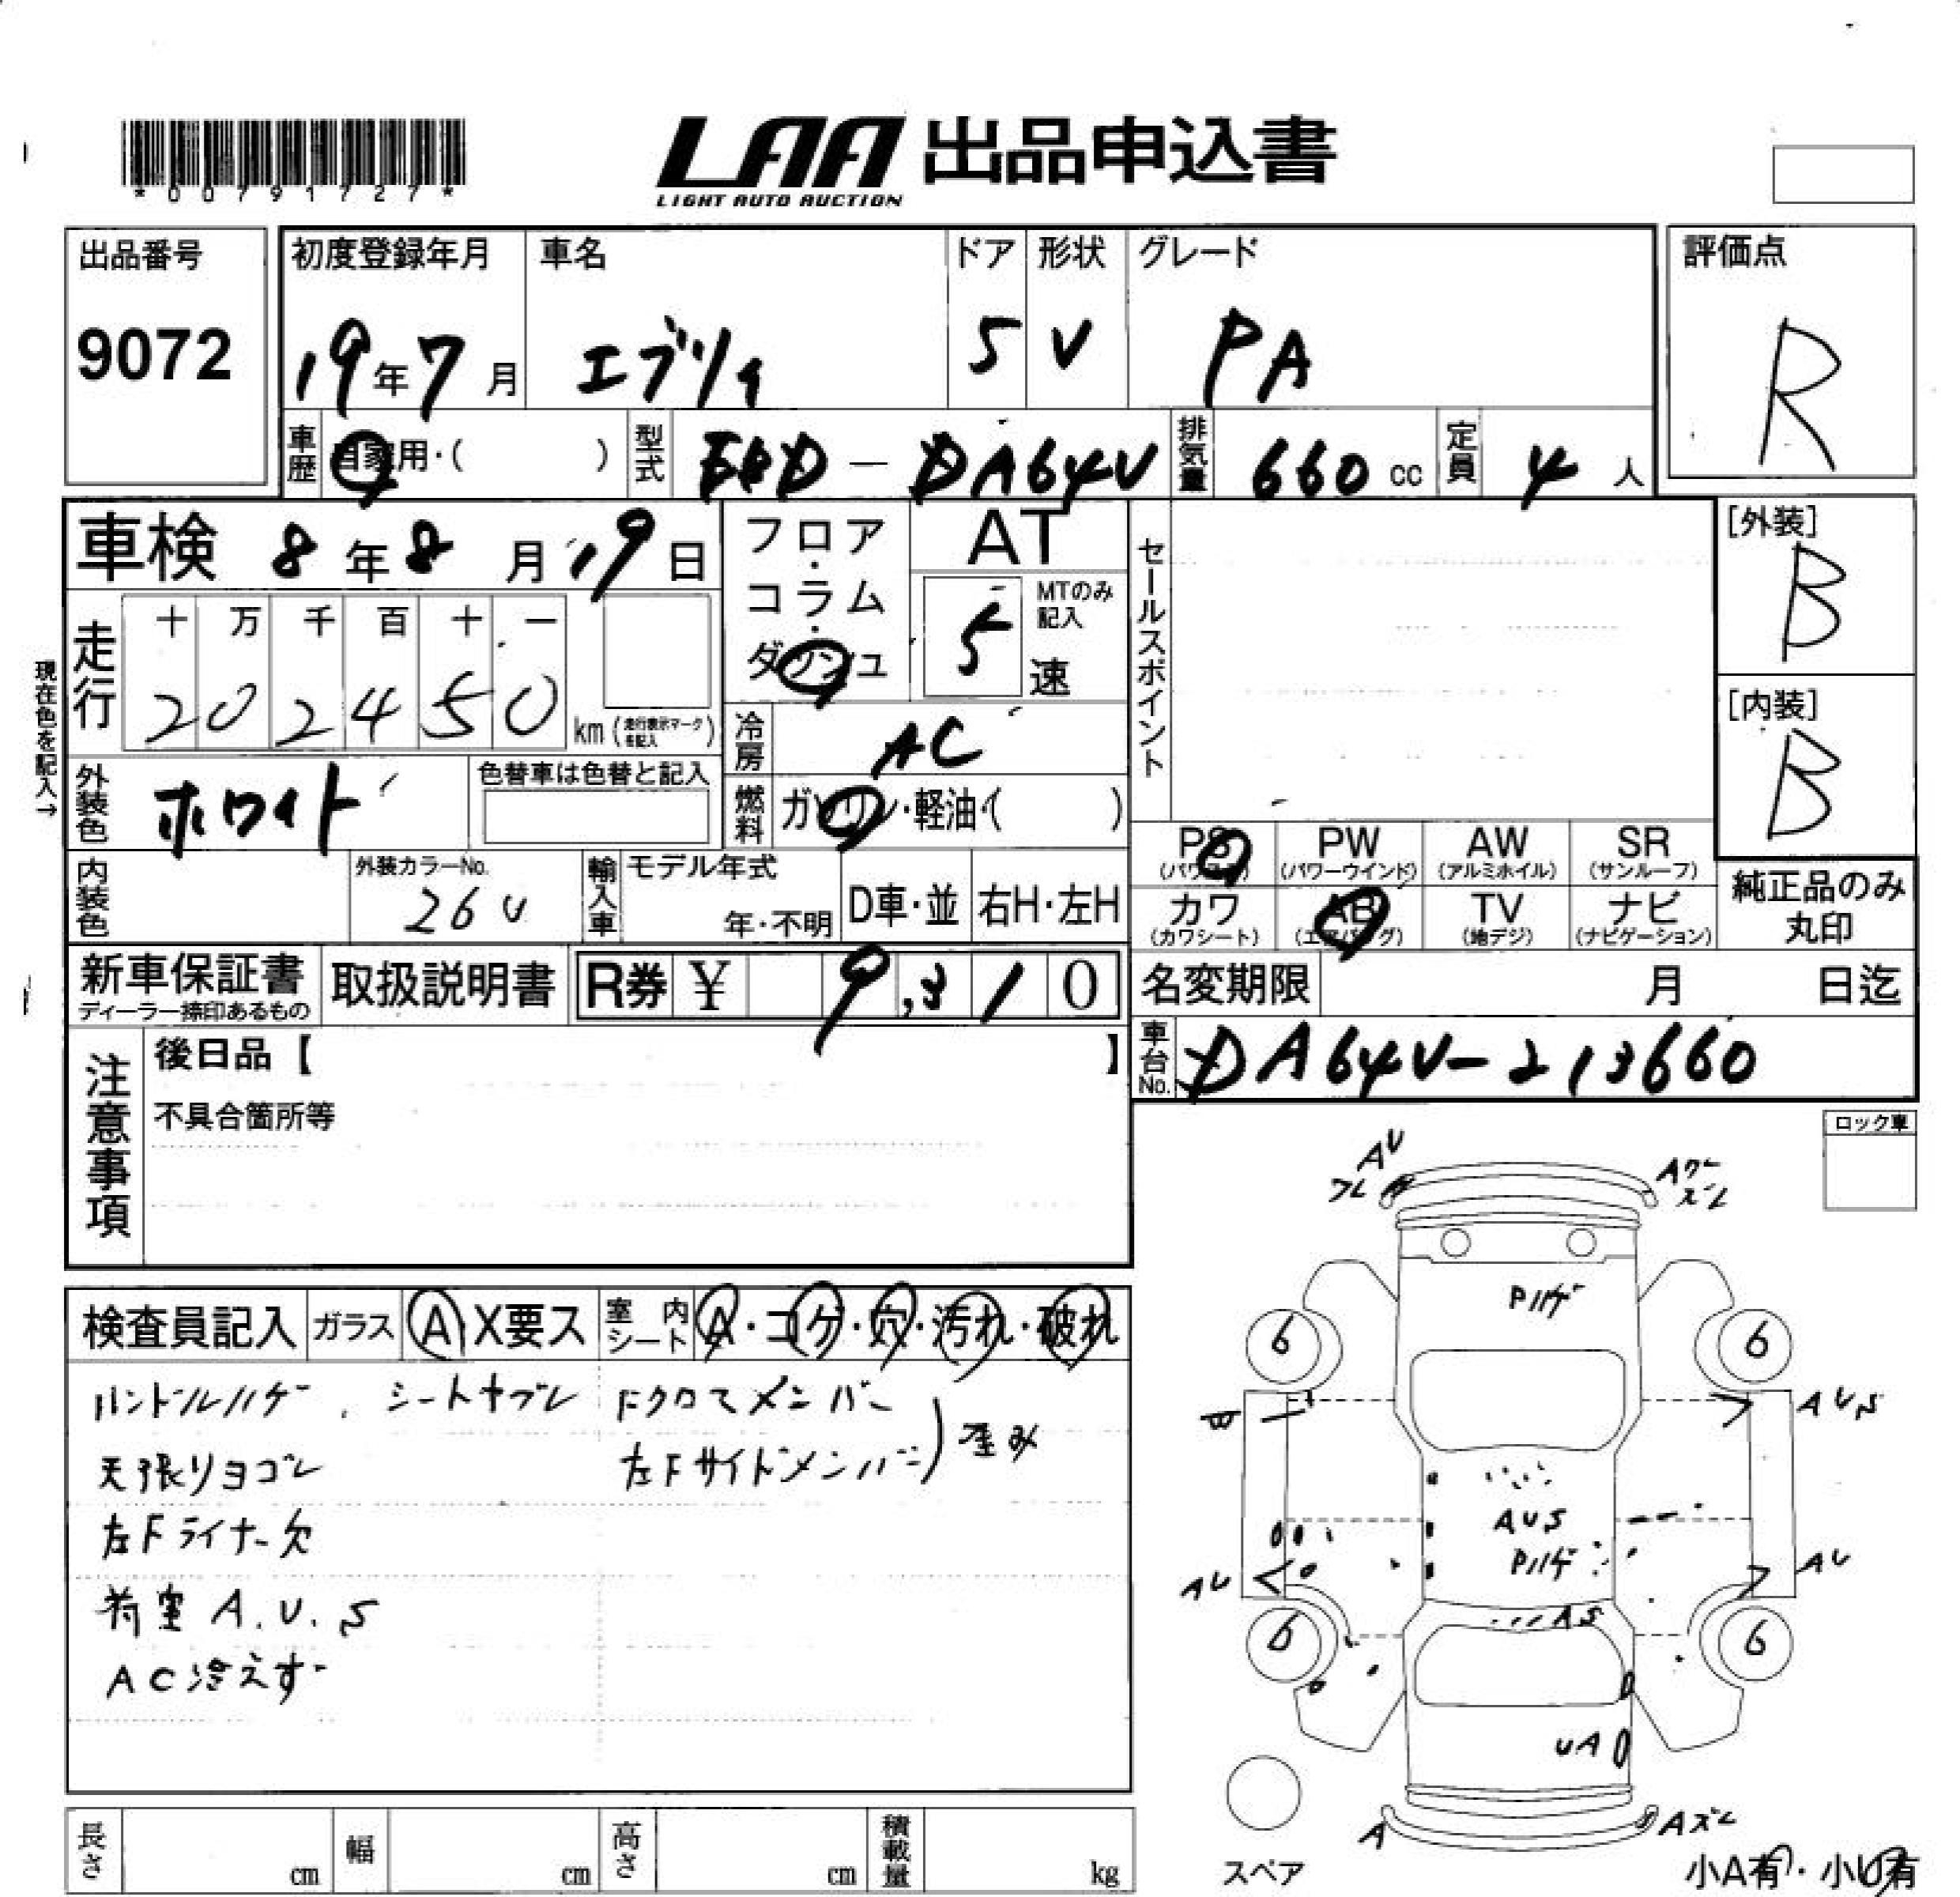 *00791727*
LAA 出品申込書
LIGHT AUTO AUCTION
出品番号
9072
初度登録年月
19年7月
車名
エブリィ
ドア
5
形状
V
グレード
PA
評価点
R
車歴
自家用・( )
型式
EBD-DA64V
排気量
660cc
定員
4人
車検 8年8月19日
フロア・コラム・ダッシュ
AT
5速
MTのみ記入
セールスポイント
[外装]
B
[内装]
B
現在色を記入→
走行
十 万 千 百 十 一
2 0 2 4 5 0
km(走行表示マークを記入)
冷房
AC
外装色
ホワイト
色替車は色替と記入
燃料
ガソリン・軽油・( )
PS
(パワステ)
PW
(パワーウインド)
AW
(アルミホイル)
SR
(サンルーフ)
内装色
外装カラーNo.
26U
輸入車
モデル年式
年・不明
D車・並
右H・左H
カワ
(カワシート)
AB
(エアバッグ)
TV
(地デジ)
ナビ
(ナビゲーション)
純正品のみ丸印
新車保証書
ディーラー捺印あるもの
取扱説明書
R券 ¥ 9,310
名変期限 月 日迄
車台No.
DA64V-213660
注意事項
後日品【 】
不具合箇所等
ロック車
検査員記入
ガラス
A X要ス
室内シート
A・コゲ・穴・汚れ・破れ
ハンドルハゲ、シートヤブレ
Fクロスメンバー
左Fサイドメンバー)歪み
天張リヨゴレ
左Fライナー欠
荷室 A.U.S
AC冷えず
AU
ワレ
Aワレ
ズレ
Pハゲ
6
6
W
AUS
AUS
Pハゲ
AU
AU
AS
6
6
UA
A
Aズレ
スペア
小A有・小U有
長さ cm
幅 cm
高さ cm
積載量 kg